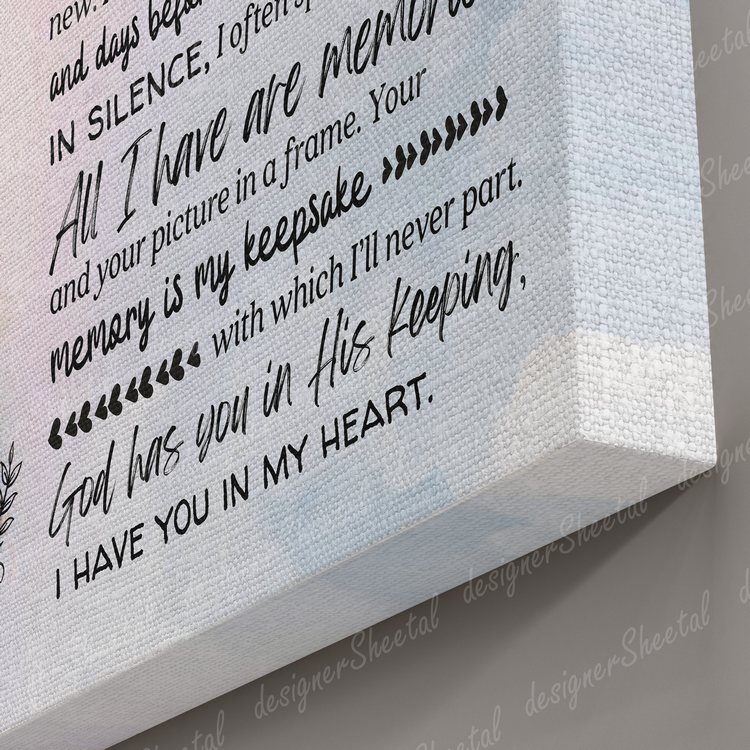 new.
and days
IN SILENCE, I often
All I have are
and your picture in a frame. Your
memory is my keepsake
with which I'll never part.
God has you in His keeping,
I HAVE YOU IN MY HEART.
designerSheetal
designerSheetal
designerSheetal
designerSheetal
designerSheetal